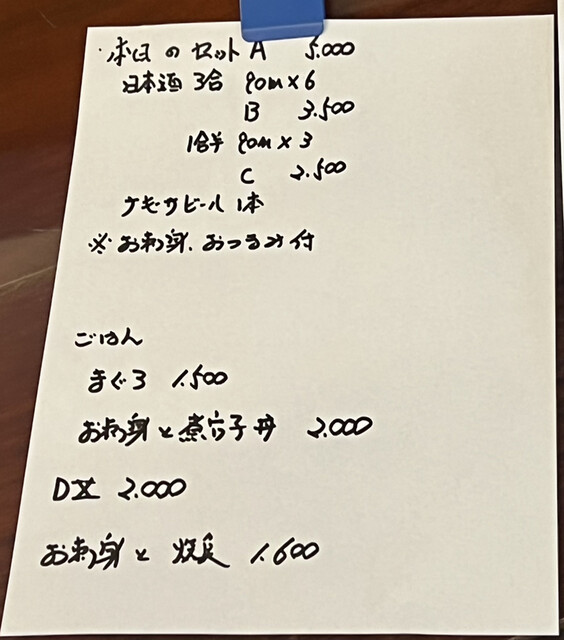 ・本日のセット A 5.000
日本酒 3合 90m×6
B 3.500
1合半 90m×3
C 2.500
ナモサビール 1本
※お刺身、おつまみ付
ごはん
まぐろ 1.500
お刺身と煮穴子丼 2.000
DX 2.000
お刺身と 1.600